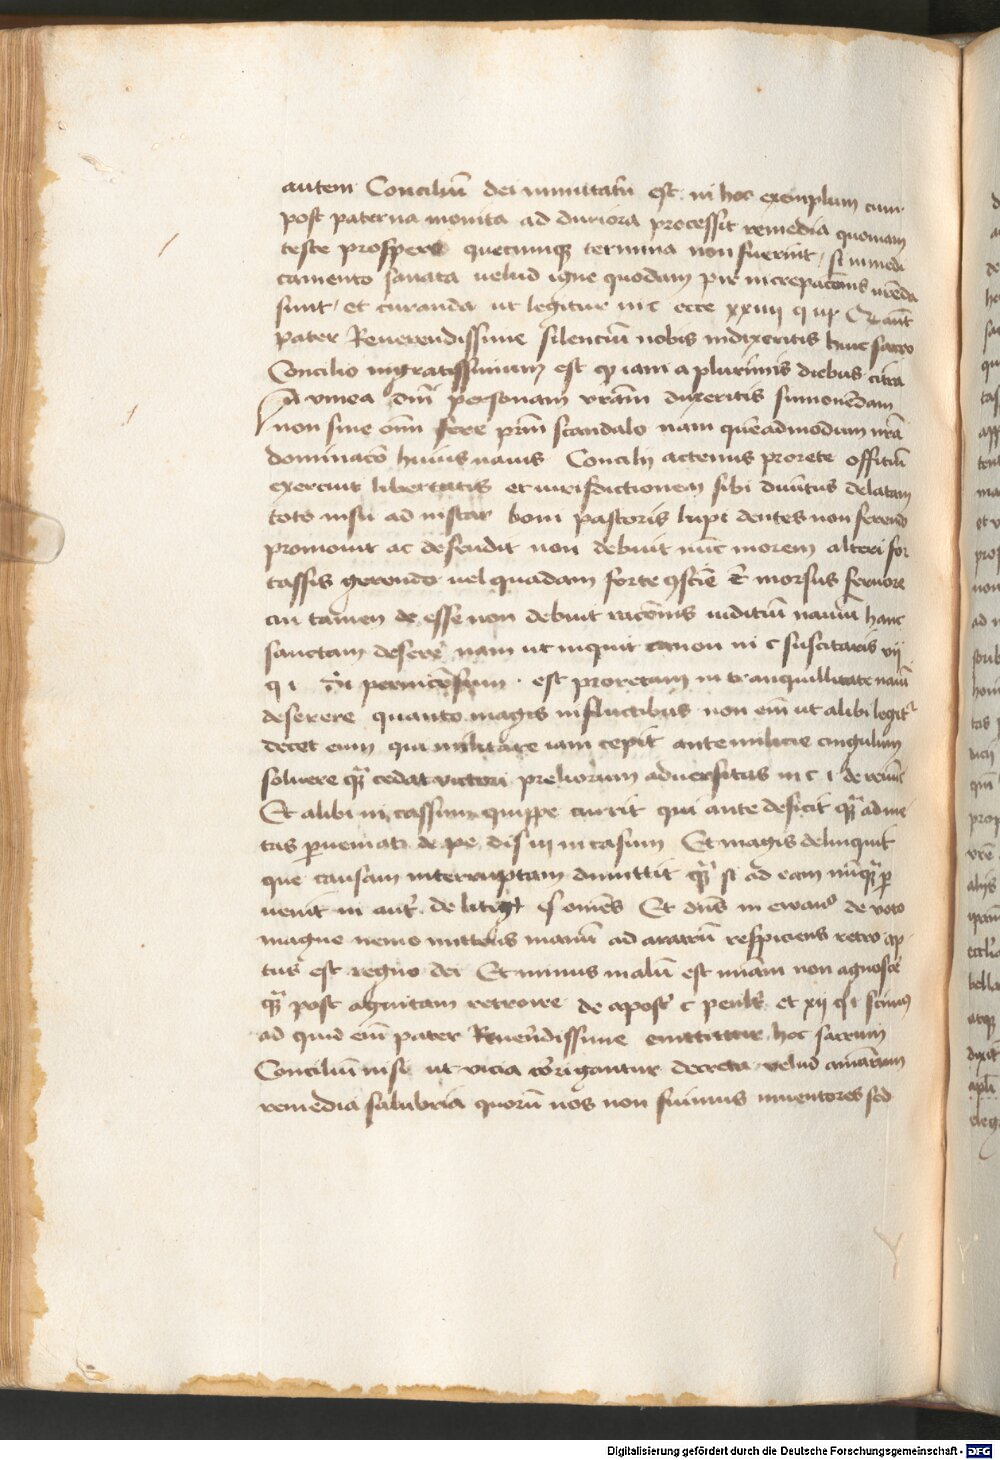 autem Conciliũ dei inmitatũ est in hoc exemplum cum
post paterna monita ad duriora processit remedia quoniam
teste prospero quecumqꝫ termina non fuerint si inmedi
camento sanata uelud igne quodam pir increpacõnis urẽda
sunt et curanda ut legitur in c ecce xxiiii q iii
pater Reuerendissime silenciũ nobis indixeritis huic sacro
Concilio ingratissimum est iam a plurimis diebus citra
vinea dñi personam vrãm duxeritis sumonẽdam
non sine om̃i fere scandalo nam quẽadmodum
dominacõ huius nauis Concilij actenus prorete offitiũ
exercuit libertatis et iurisdictionem sibi diuĩtus delatam
toto nisu ad instar boni pastoris lupi dentes non ferendo
promouit ac defendit non debuit nũc morem alteri for
tassis gerendo uel quadam forte morsus feruore
cui tamen de esse non debuit racõnis iuditiũ nauim hanc
sanctam deserẽ nam ut inquit canon in c suscitaris vii
q i est proretam in tranquillitate nauim
deserere quanto magis in fluctibus non eĩ ut alibi legit᷑
decet eum qui militare iam cepit ante milicie cingulum
soluere qua᷑ cedat victori preliorum aduersitas in c i de renũc
Et alibi in cassum quippe currit qui ante deficit qua᷑ ad me
tas de pe dis iii in casum Et magis delinquit
que causam interruptam dimittit si ad eam
uenit in de litig Et dñs in ewanᵒ de voto
magne nemo mittens manũ ad aratrũ respiciens retro ap
tus est regno dei Et minus malũ est uiam non agnoscẽ
post agnitam retroire de apost c penult et xij q i scimus
ad quid eĩ pater Reuerẽdissime emittitur hoc sacrum
Conciliũ nisi ut vicia corrigantur decreta velud
remedia salubria quorũ nos non fuimus inuentores sed
Digitalisierung gefördert durch die Deutsche Forschungsgemeinschaft - DFG